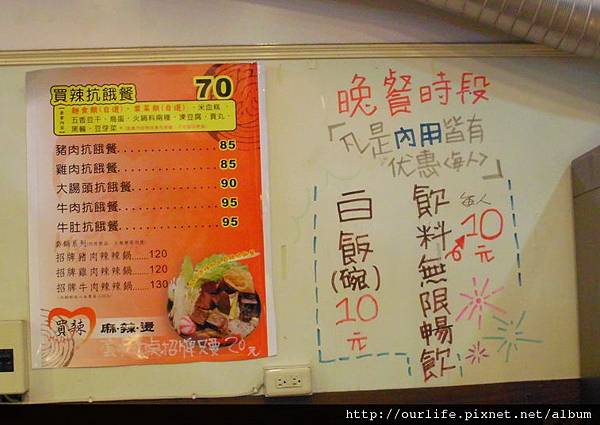 買辣抗餓餐 70
麵食類(自選)、葉菜類(自選)、米血糕、
五香豆干、鳥蛋、火鍋料兩種、凍豆腐、貢丸、
黑輪、豆芽菜
豬肉抗餓餐 85
雞肉抗餓餐 85
大腸頭抗餓餐 90
牛肉抗餓餐 95
牛肚抗餓餐 95
招牌豬肉辣辣鍋......120
招牌雞肉辣辣鍋......120
招牌牛肉辣辣鍋......130
買辣 麻.辣.燙
晚餐時段
「凡是內用皆有
优惠<每人>」
白飯(碗)10元
飲料無限暢飲
每人
10元
http://ourlife.pixnet.net/album